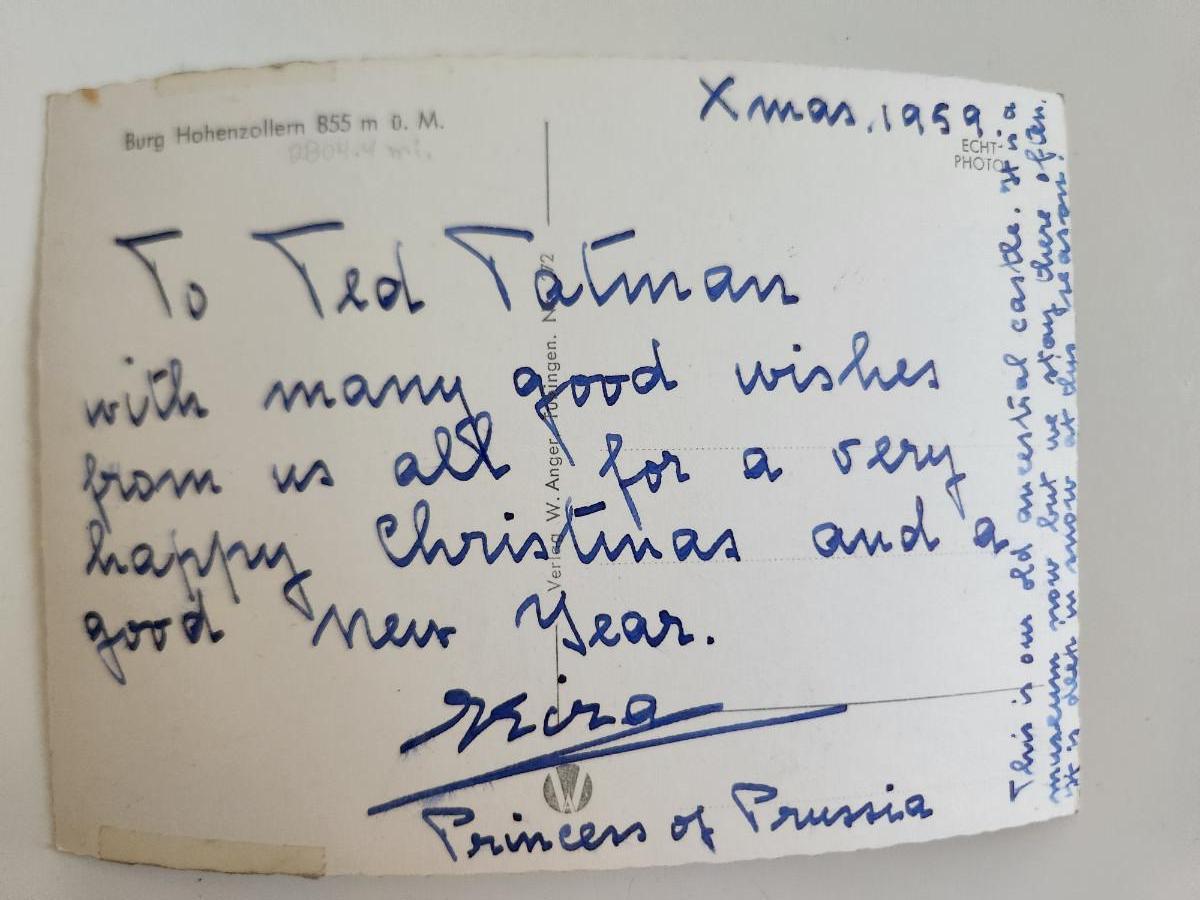 Burg Hohenzollern 855 m ü. M.
Xmas. 1959.
ECHT-
PHOTO
To Ted Tatman
with many good wishes
from us all for a very
happy Christmas and a
good New Year.
Kira
Princess of Prussia
Verlag W. Anger, Tübingen.
This is our old ancestral castle. It is a
museum now but we stay there often.
It is deep in snow at this season.